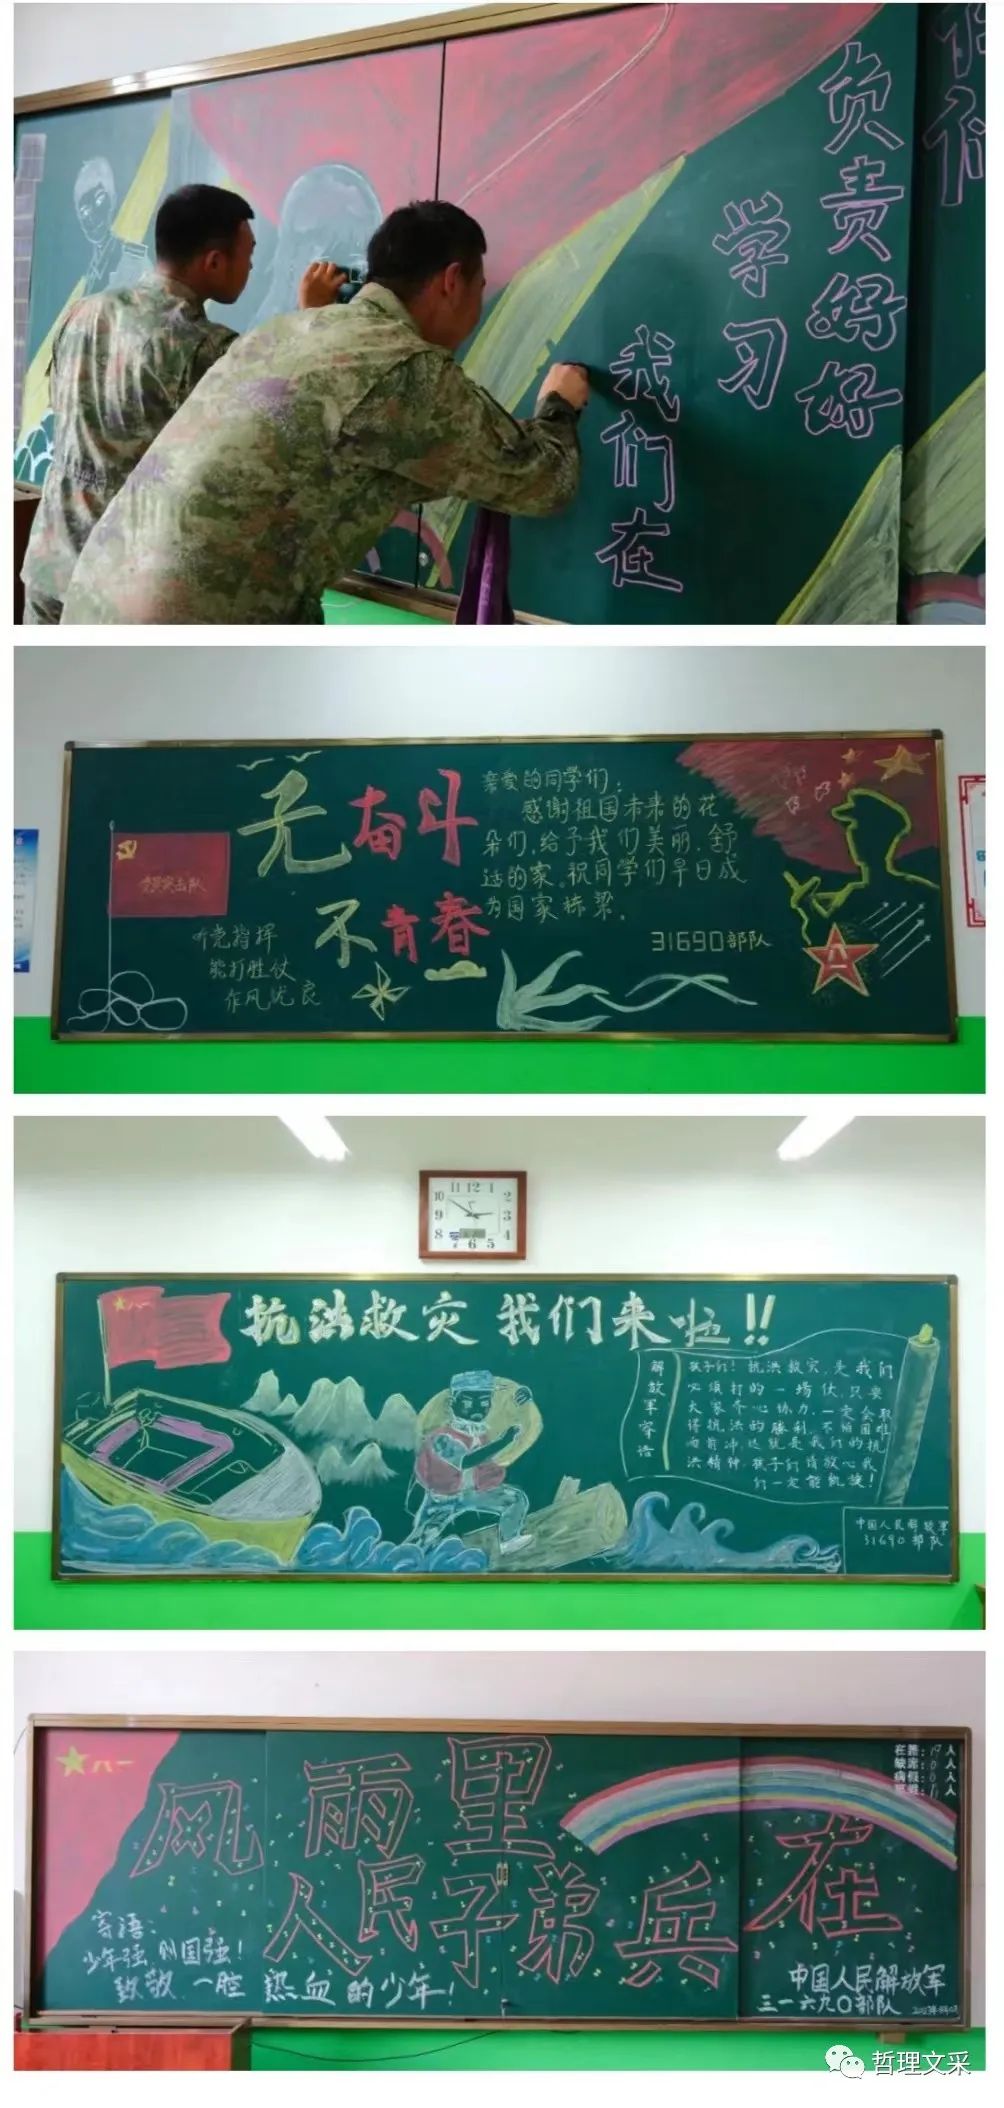 你们
负责好好
学习
我们在
无奋斗
不青春
亲爱的同学们：
感谢祖国未来的花
朵们，给予我们美丽、舒
适的家。祝同学们早日成
为国家栋梁。
31690部队
党员突击队
听党指挥
能打胜仗
作风优良
10 11 12 1 2
9 3
8 7 6 5 4
八一
抗洪救灾 我们来啦!!
解放军寄语
孩子们！抗洪救灾，是我们
必须打的一场仗，只要
大家齐心协力，一定会取
得抗洪的胜利，不怕困难
向前冲，这就是我们的抗
洪精神，孩子们请放心我
们一定能凯旋！
中国人民解放军
31690部队
八一
风雨里
人民子弟兵在
寄语：
少年强，则国强！
致敬一腔热血的少年！
中国人民解放军
三一六九〇部队
哲理文采